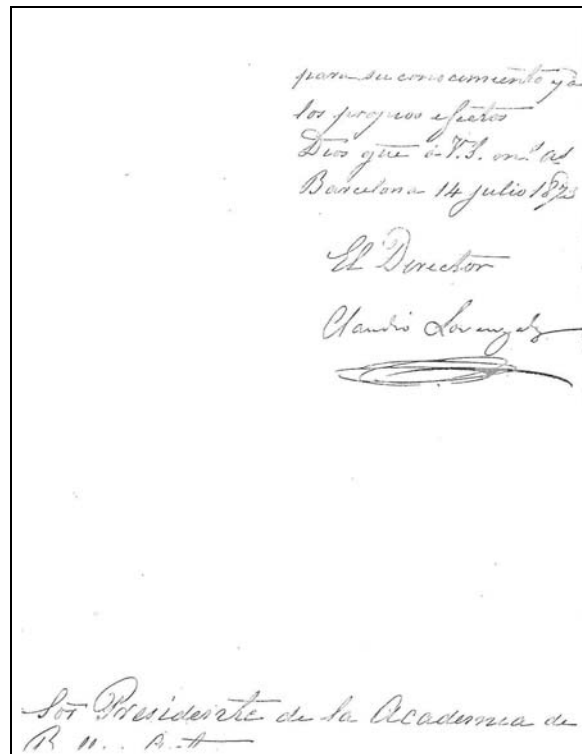 para su conocimiento y a
los propios efectos
Dios gue á V.S. ms. as
Barcelona 14 julio 1873
El Director
Claudio Lorenzale
Sor Presidente de la Academia de